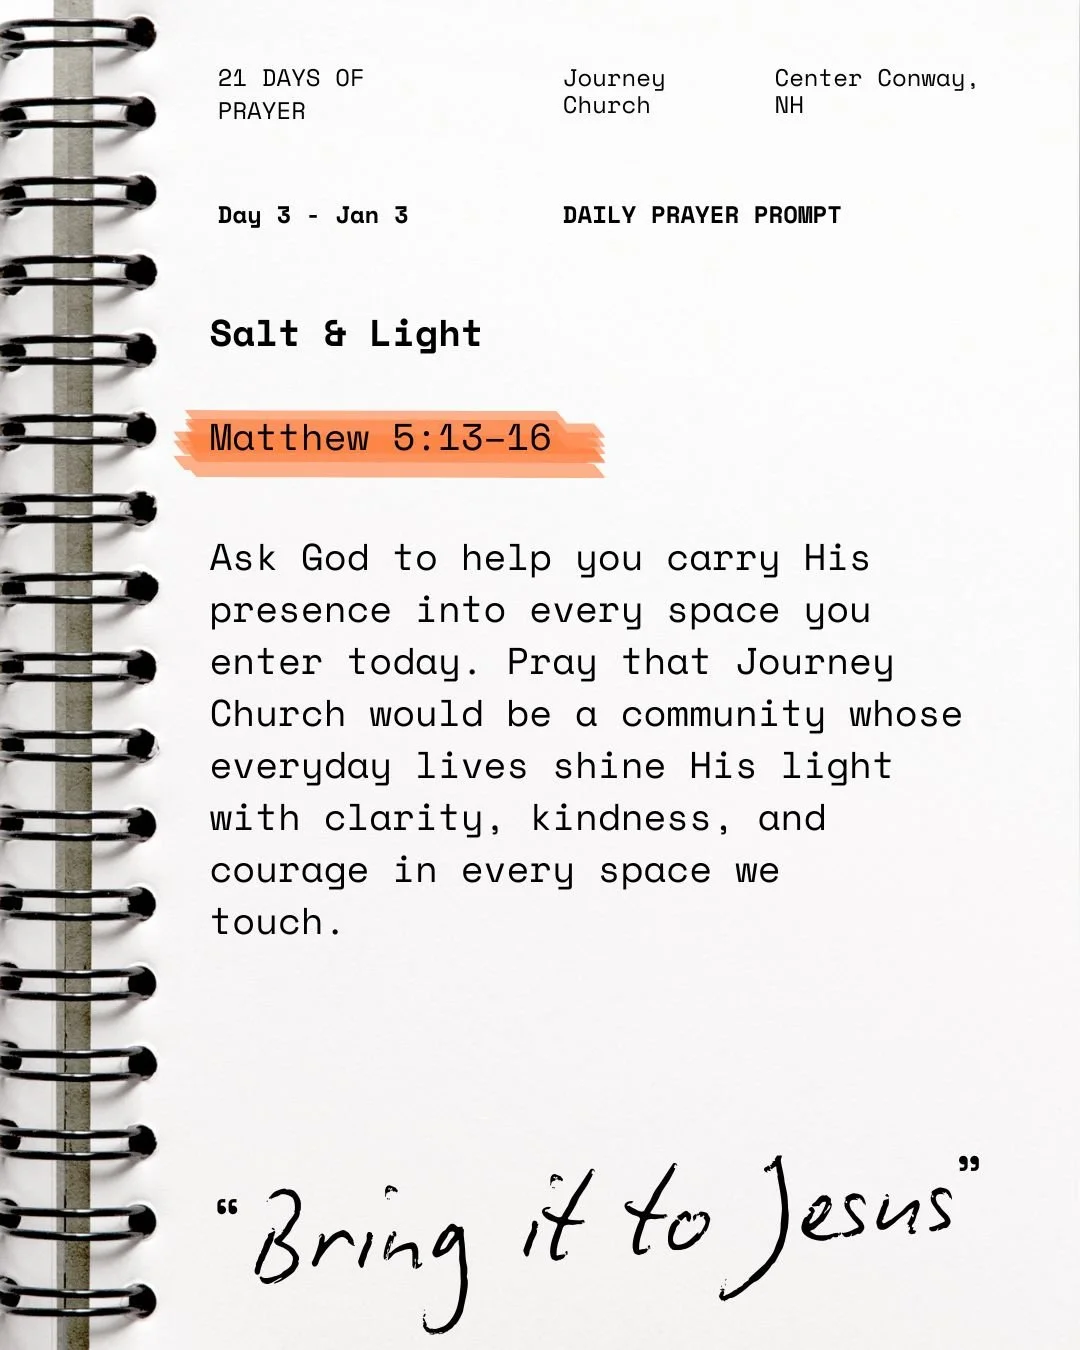 21 DAYS OF
PRAYER
Journey
Church
Center Conway,
NH
Day 3 - Jan 3
DAILY PRAYER PROMPT
Salt & Light
Matthew 5:13–16
Ask God to help you carry His
presence into every space you
enter today. Pray that Journey
Church would be a community whose
everyday lives shine His light
with clarity, kindness, and
courage in every space we
touch.
“Bring it to Jesus”